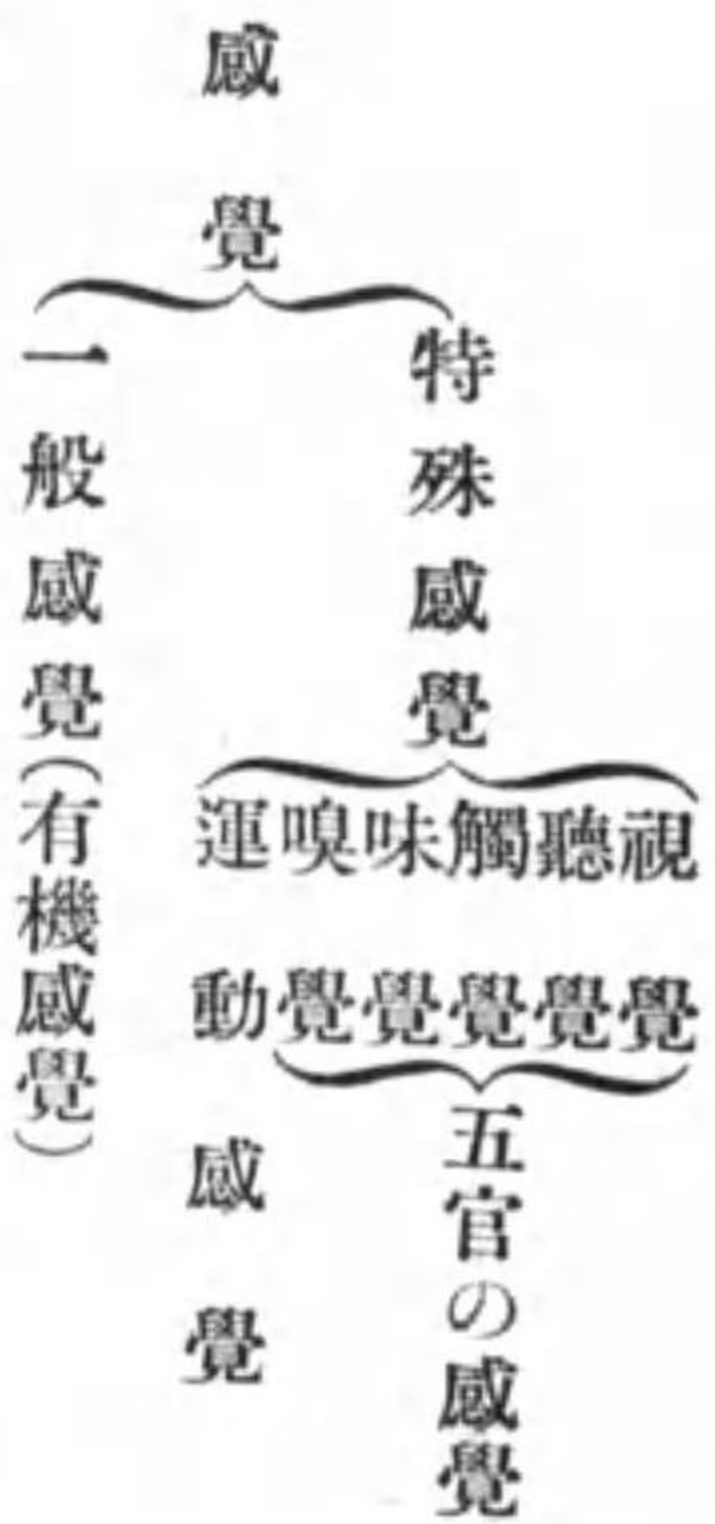 感覺
特殊感覺
視覺
聽覺
觸覺
味覺
嗅覺
五官の感覺
運動感覺
一般感覺(有機感覺)